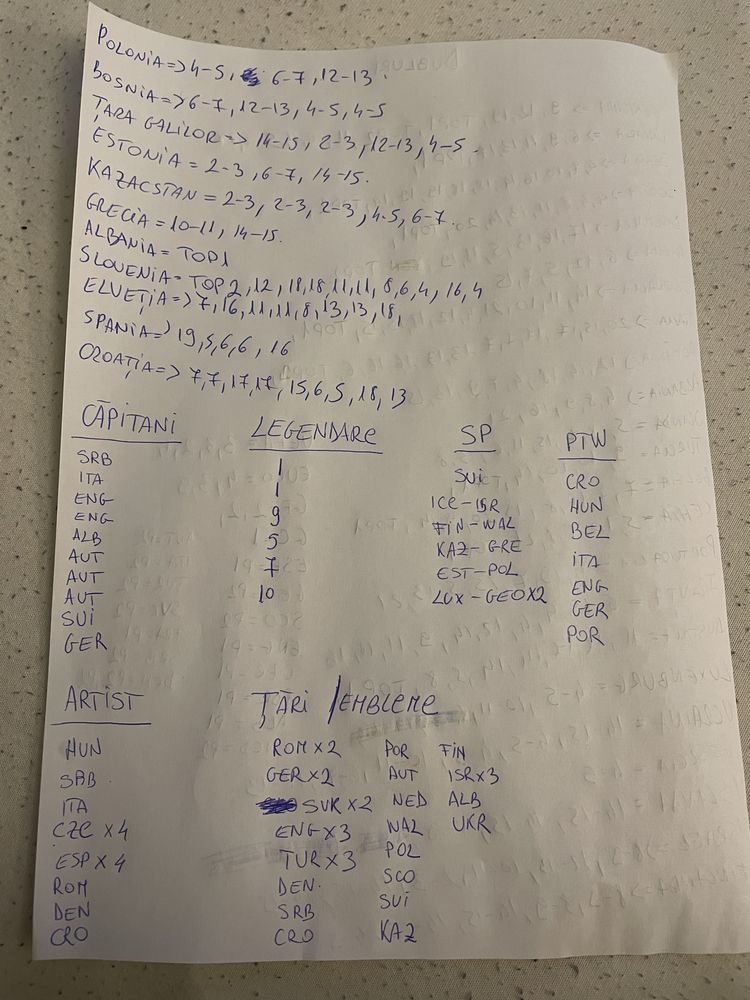 POLONIA => 4-5, 6-7, 12-13.
BOSNIA => 6-7, 12-13, 4-5, 4-5
ȚARA GALILOR => 14-15, 2-3, 12-13, 4-5.
ESTONIA = 2-3, 6-7, 14-15.
KAZACSTAN = 2-3, 2-3, 2-3, 4-5, 6-7.
GRECIA = 10-11, 14-15.
ALBANIA = TOP1
SLOVENIA = TOP 2, 12, 18, 18, 11, 11, 8, 6, 4, 16, 4
ELVEȚIA => 7, 16, 11, 11, 8, 13, 13, 18,
SPANIA => 19, 5, 6, 6, 16
CROAȚIA => 7, 7, 17, 17, 15, 6, 5, 18, 13
CĂPITANI
SRB
ITA
ENG
ENG
ALB
AUT
AUT
AUT
SUI
GER
LEGENDARE
1
1
9
5
7
10
SP
SUI
ICE-ISR
FIN-WAL
KAZ-GRE
EST-POL
LUX-GEO X2
PTW
CRO
HUN
BEL
ITA
ENG
GER
POR
ARTIST
HUN
SRB
ITA
CZE X 4
ESP X 4
ROM
DEN
CRO
ȚĂRI / EMBLEME
ROM X 2
GER X 2
SVK X 2
ENG X 3
TUR X 3
DEN.
SRB
CRO
POR
AUT
NED
WAL
POL
SCO
SUI
KAZ
FIN
ISR X 3
ALB
UKR